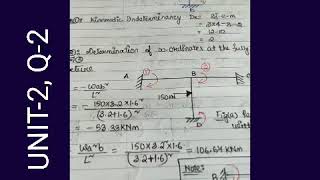 UNIT-2, Q-2
Kinematic Indeterminancy Dk = 3j-e-m
= 3×4-8-2
= 12-10
= 2
Determination of co-ordinates at the fully
cture
A
①
B
②
C
= -Wab²
L²
= -150×3.2×1.6²
(3.2+1.6)²
= -53.33 kNm
150kN
D
Fig
Wa²b
L²
= 150×3.2²×1.6
(3.2+1.6)²
= 106.67 kNm
Note:
B